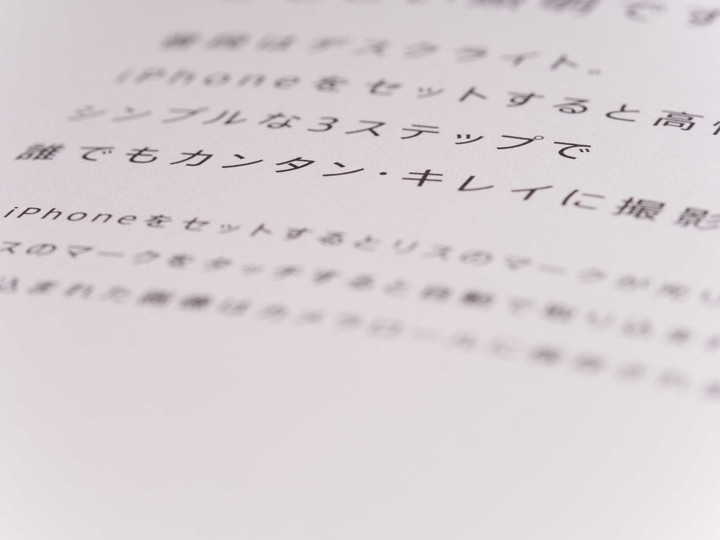 デスクライト。
iPhoneをセットすると高
シンプルな3ステップで
誰でもカンタン・キレイに撮影
iPhoneをセットするとリスのマークが光り
スのマークをタッチすると自動で取り込まれ
込まれた画像はカメラロールに保存されま